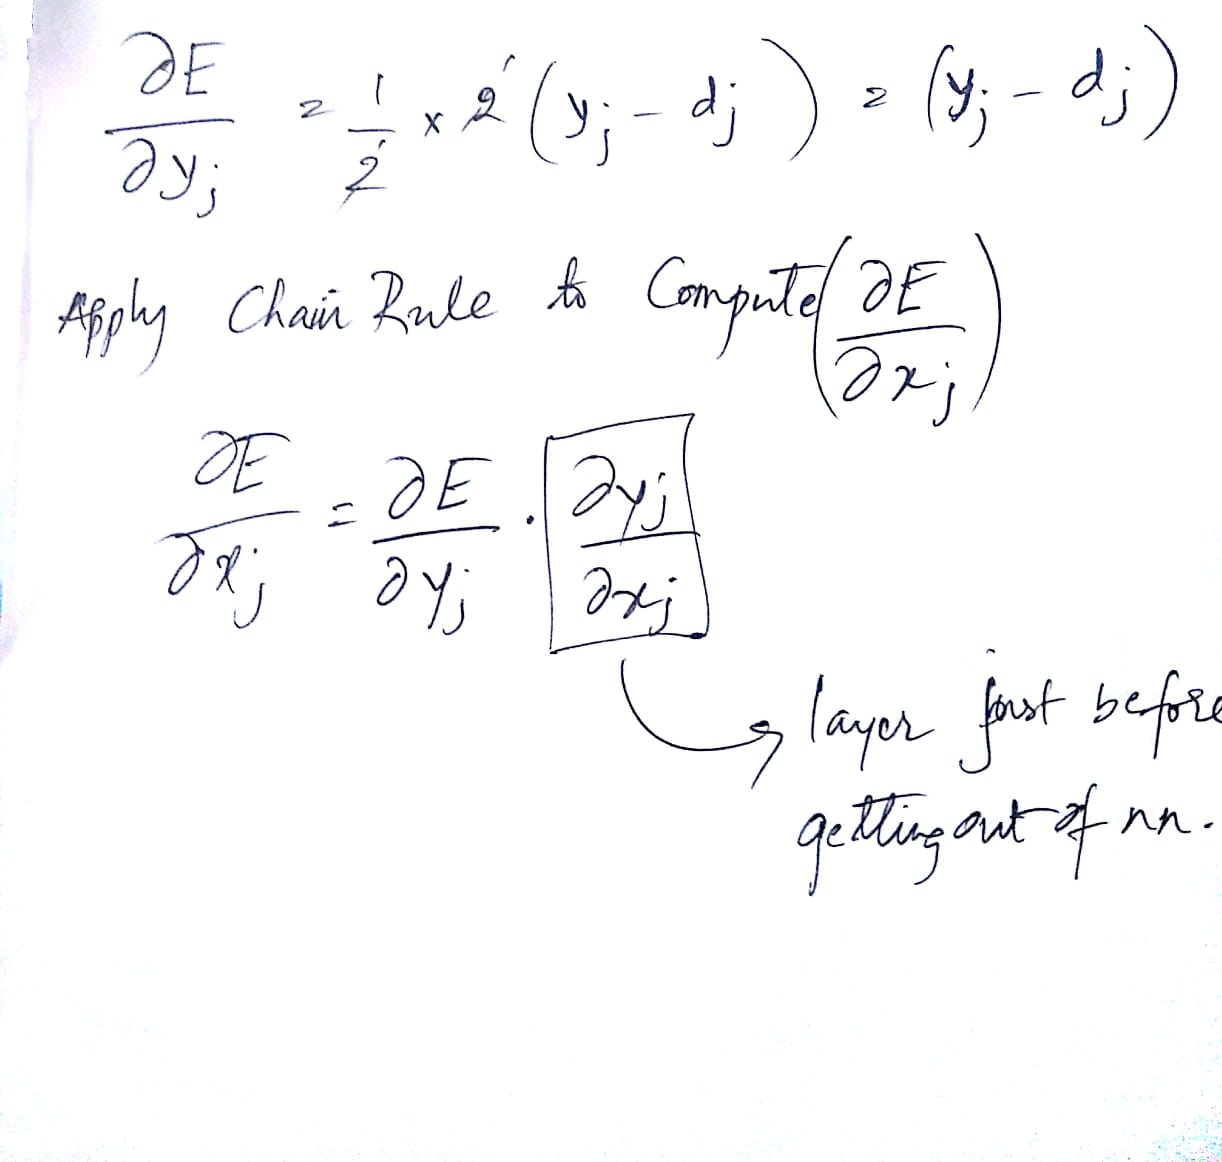 ∂E/∂yⱼ = 1/2 × 2 (yⱼ - dⱼ) = (yⱼ - dⱼ)
Apply Chain Rule to Compute (∂E/∂xⱼ)
∂E/∂xⱼ = ∂E/∂yⱼ · ∂yⱼ/∂xⱼ
layer just before
getting out of nn.